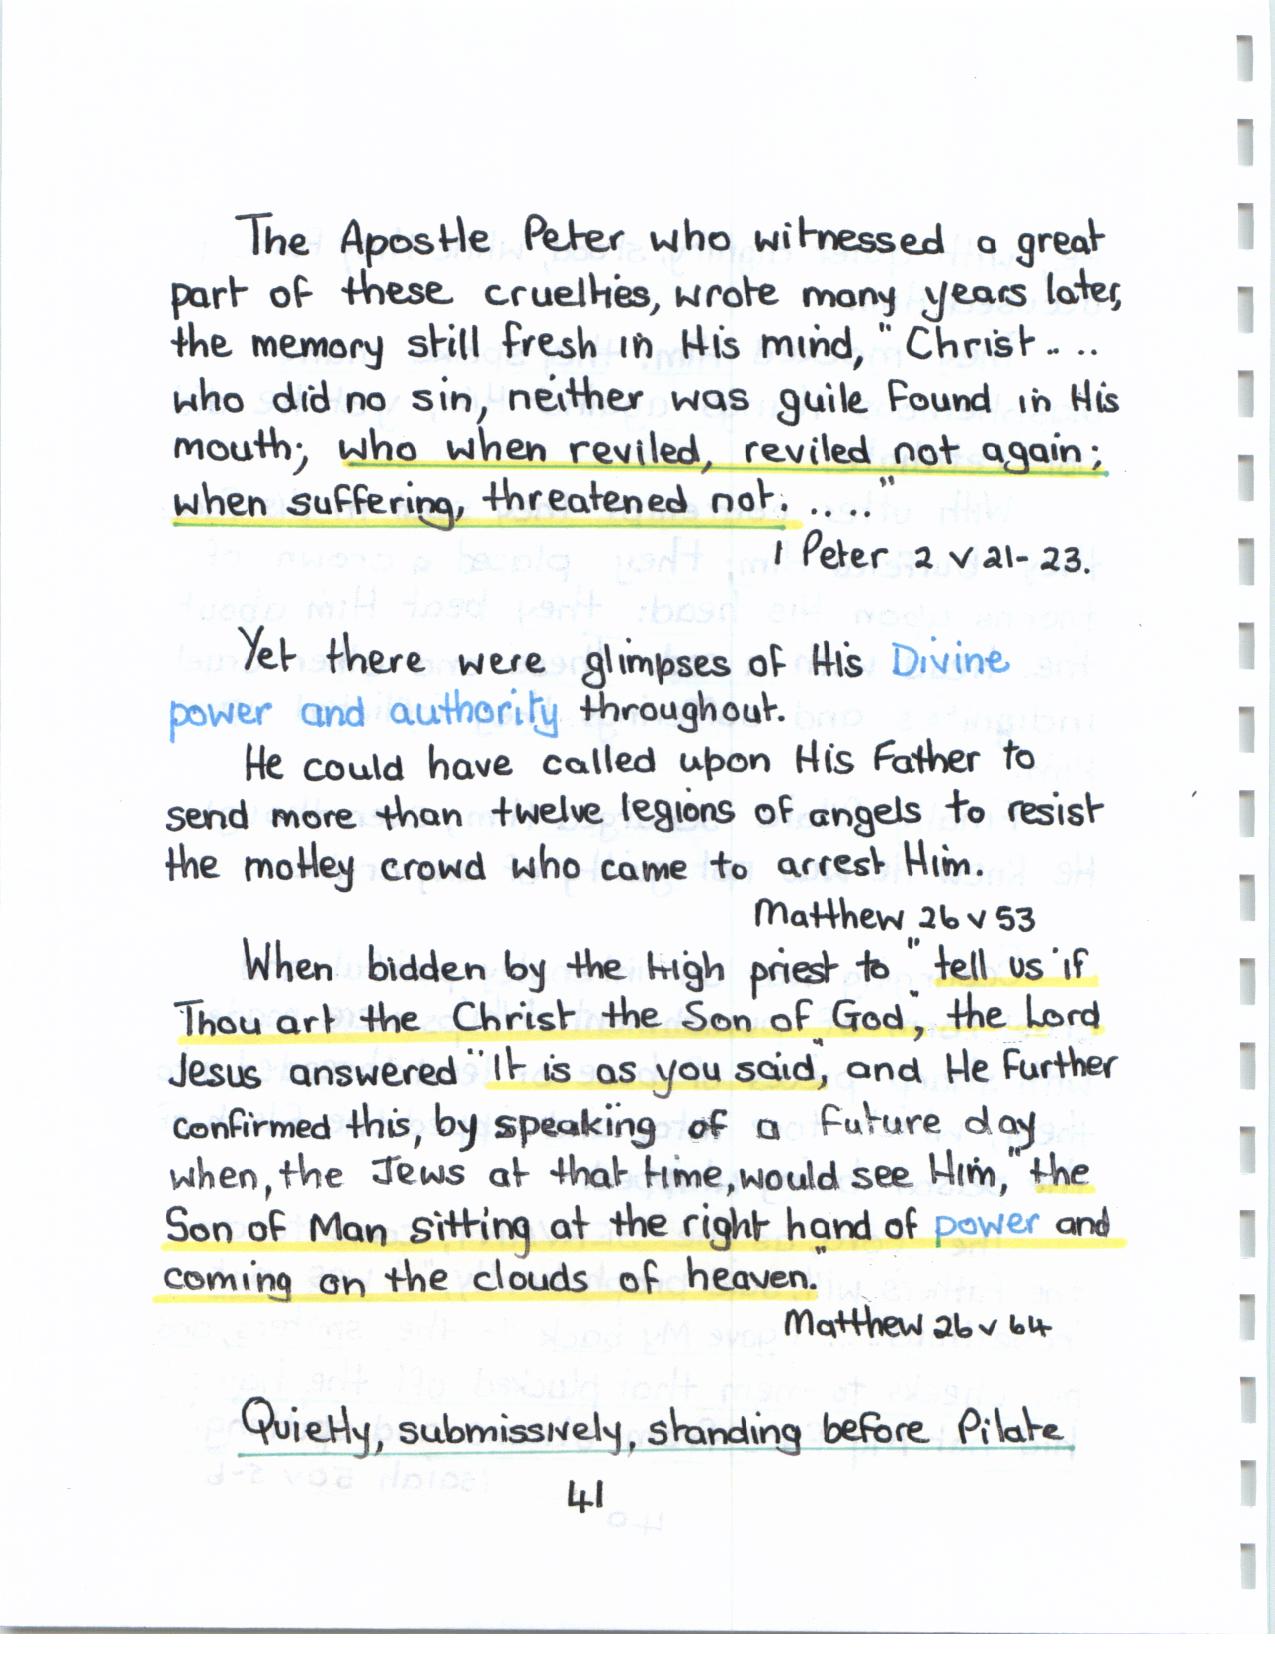 The Apostle Peter who witnessed a great
part of these cruelties, wrote many years later,
the memory still fresh in His mind, "Christ ....
who did no sin, neither was guile found in His
mouth; who when reviled, reviled not again;
when suffering, threatened not; ...."
1 Peter 2 v 21-23.
Yet there were glimpses of His Divine
power and authority throughout.
He could have called upon His Father to
send more than twelve legions of angels to resist
the motley crowd who came to arrest Him.
Matthew 26 v 53
When bidden by the High priest to "tell us if
Thou art the Christ the Son of God," the Lord
Jesus answered "It is as you said," and He further
confirmed this, by speaking of a future day
when, the Jews at that time, would see Him, "the
Son of Man sitting at the right hand of power and
coming on the clouds of heaven."
Matthew 26 v 64
Quietly, submissively, standing before Pilate
41